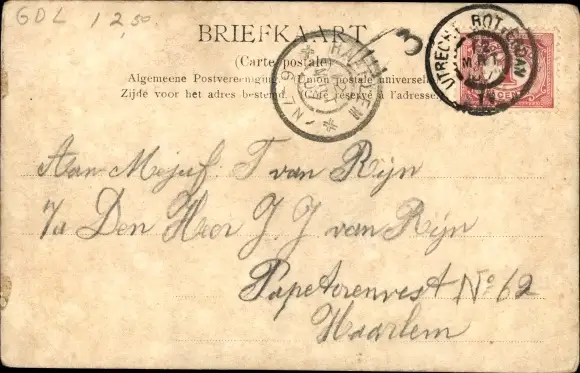 GDL 12,50
BRIEFKAART
(Carte postale)
Algemeene Postvereeniging Union postale universelle
Zijde voor het adres bestemd. Côté réservé à l'adresse.
HAARLEM
UTRECHT-ROTTERDAM
3
Aan Mejuf. T van Rijn
7a Den Heer J. J van Rijn
Papetorenvest No 62
Haarlem